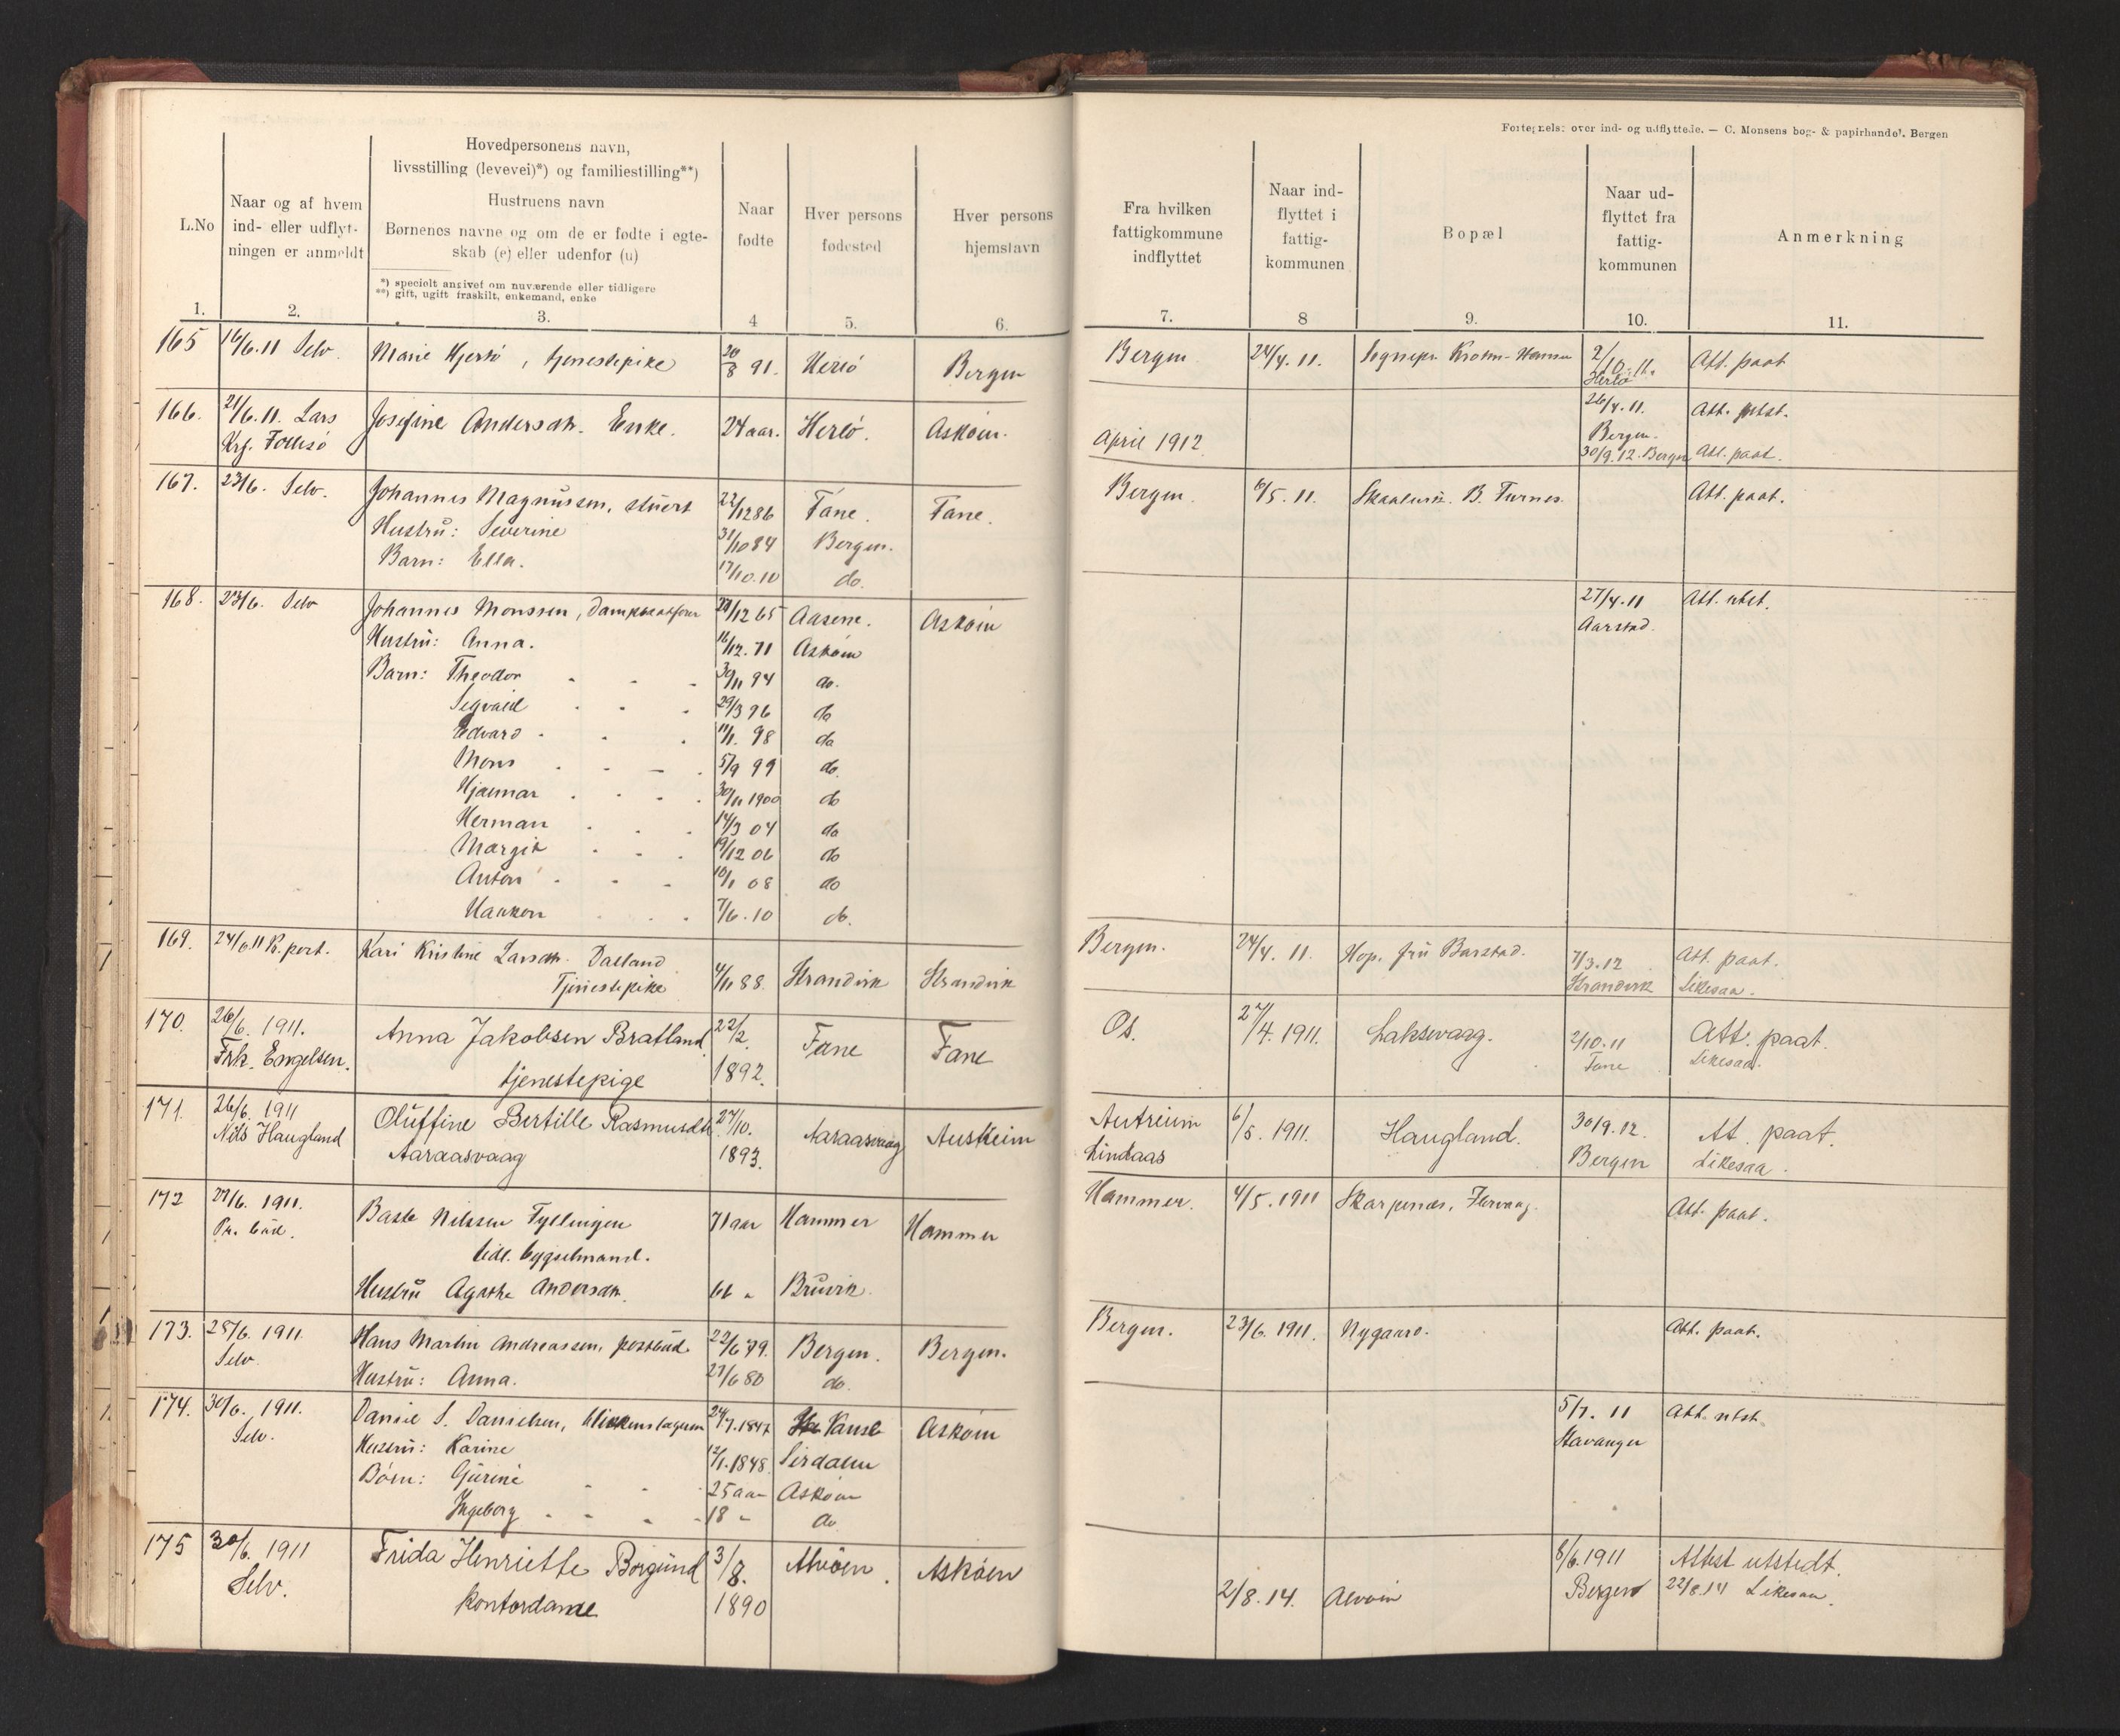 Fortegnelse over ind- og udflyttede. — C. Monsens bog- & papirhandel, Bergen
L.No
Naar og af hvem ind- eller udflytningen er anmeldt
Hovedpersonens navn,
livsstilling (levevei)*) og familiestilling**)
Hustruens navn
Børnenes navne og om de er fødte i egte-
skab (e) eller udenfor (u)
*) specielt angivet om nuværende eller tidligere
**) gift, ugift fraskilt, enkemand, enke
Naar fødte
Hver persons fødested
Hver persons hjemstavn
Fra hvilken fattigkommune indflyttet
Naar ind-flyttet i fattig-kommunen
Bopæl
Naar ud-flyttet fra fattig-kommunen
Anmerkning
1. 2. 3. 4 5. 6. 7. 8 9. 10. 11.
165 16/6.11 Selv. Marie Hjertö, tjenestepike 20/8 91. Herlö Bergen Bergen 24/4.11. Sognepr. Krohn-Hansen 2/10.11. Att. paat
Herlö
166. 21/6.11. Lars Josefine Andersdtr. Enke. 74 aar. Herlö. Askøin. 26/4.11. Att. utst.
Krf. Follesö Bergen.
April 1912 30/9.12. Bergen Att. paat.
167. 23/6. Selv. Johannes Magnussen, stuert 22/12 86 Fane. Fane. Bergen. 6/5.11. B. Turnes. Att. paat.
Hustru: Severine 31/10 84 Bergen.
Barn: Ella. 17/10.10 do.
168. 23/6. Selv Johannes Monssen, Dampbaatfører /12 65 Aasene. Askøin 27/4.11 Att. utst.
Hustru: Anna. 16/12.71 Askøin Aarstad.
Barn: Theodor - - - 30/11 94 do.
Sigvald - - - 29/3 96 do
Edvard - - - 11/1. 98 do
Mons - - - 5/9 99 do.
Hjalmar - - - 30/11 1900 do
Herman - - - 14/3 04 do
Margit - - - 19/12 06 do
Anton - - - 10/1 08 do
Haakon - - - 7/6.10 do.
169. 24/6 11 K. port. Kari Kristine Larsdtr. Dalland Bergen. 24/4.11. Hop. fru Barstad. 7/3.12 Att. paat.
Tjenestepike 4/11 88. Strandvik Strandvik Strandvik Likesaa.
170. 26/6. 1911. Anna Jakobsen Bratland 22/2. Fane Fane Os. 27/4. 1911. Laksevaag. 2/10.11 Att. paat.
Frk. Engelsen. tjenestepige 1892. Fane Likesaa.
171. 26/6. 1911 Oluffine Bertille Rasmusdtr. 27/10. Aaraasvaag Austreim Autreium 6/5. 1911. Haugland. 30/9.12. At. paat.
Nils Haugland Aaraasvaag 1893. Lindaas Bergen Likesaa.
172 27/6. 1911. Baste Nilssen Tyllingen 71 aar Hammer Hammer Hammer. 4/5.1911 Skarpenes, Florvaag. Att. paat.
Pr. bud. tidl. bygselmand.
Hustru Agathe Andersdtr. 66 " Bruvik.
173. 28/6. 1911 Hans Martin Andreassen, postbud. 22/6 79. Bergen. Bergen. Bergen. 23/6. 1911. Nygaard. Att. paat.
Selv. Hustru: Anna. 27/6 80 do.
174. 30/6. 1911. Daniel S. Danielsen, blikkenslagersv. 24/7.1847 Askøin 5/7. 11 Att. utst.
Selv. Hustru: Karine 12/1.1848. Sirdalen Stavanger
Börn: Gurine - - - 25 aar Askøin
Ingeborg - - - 18 " do
175 30/6. 1911 Frida Henriette Borgund 3/8. Alvöen. Askøen 8/6.1911 Attest utstedt.
Selv. kontordame 1890 2/8.14. Alvøin Bergen 22/8.14 Likesaa.